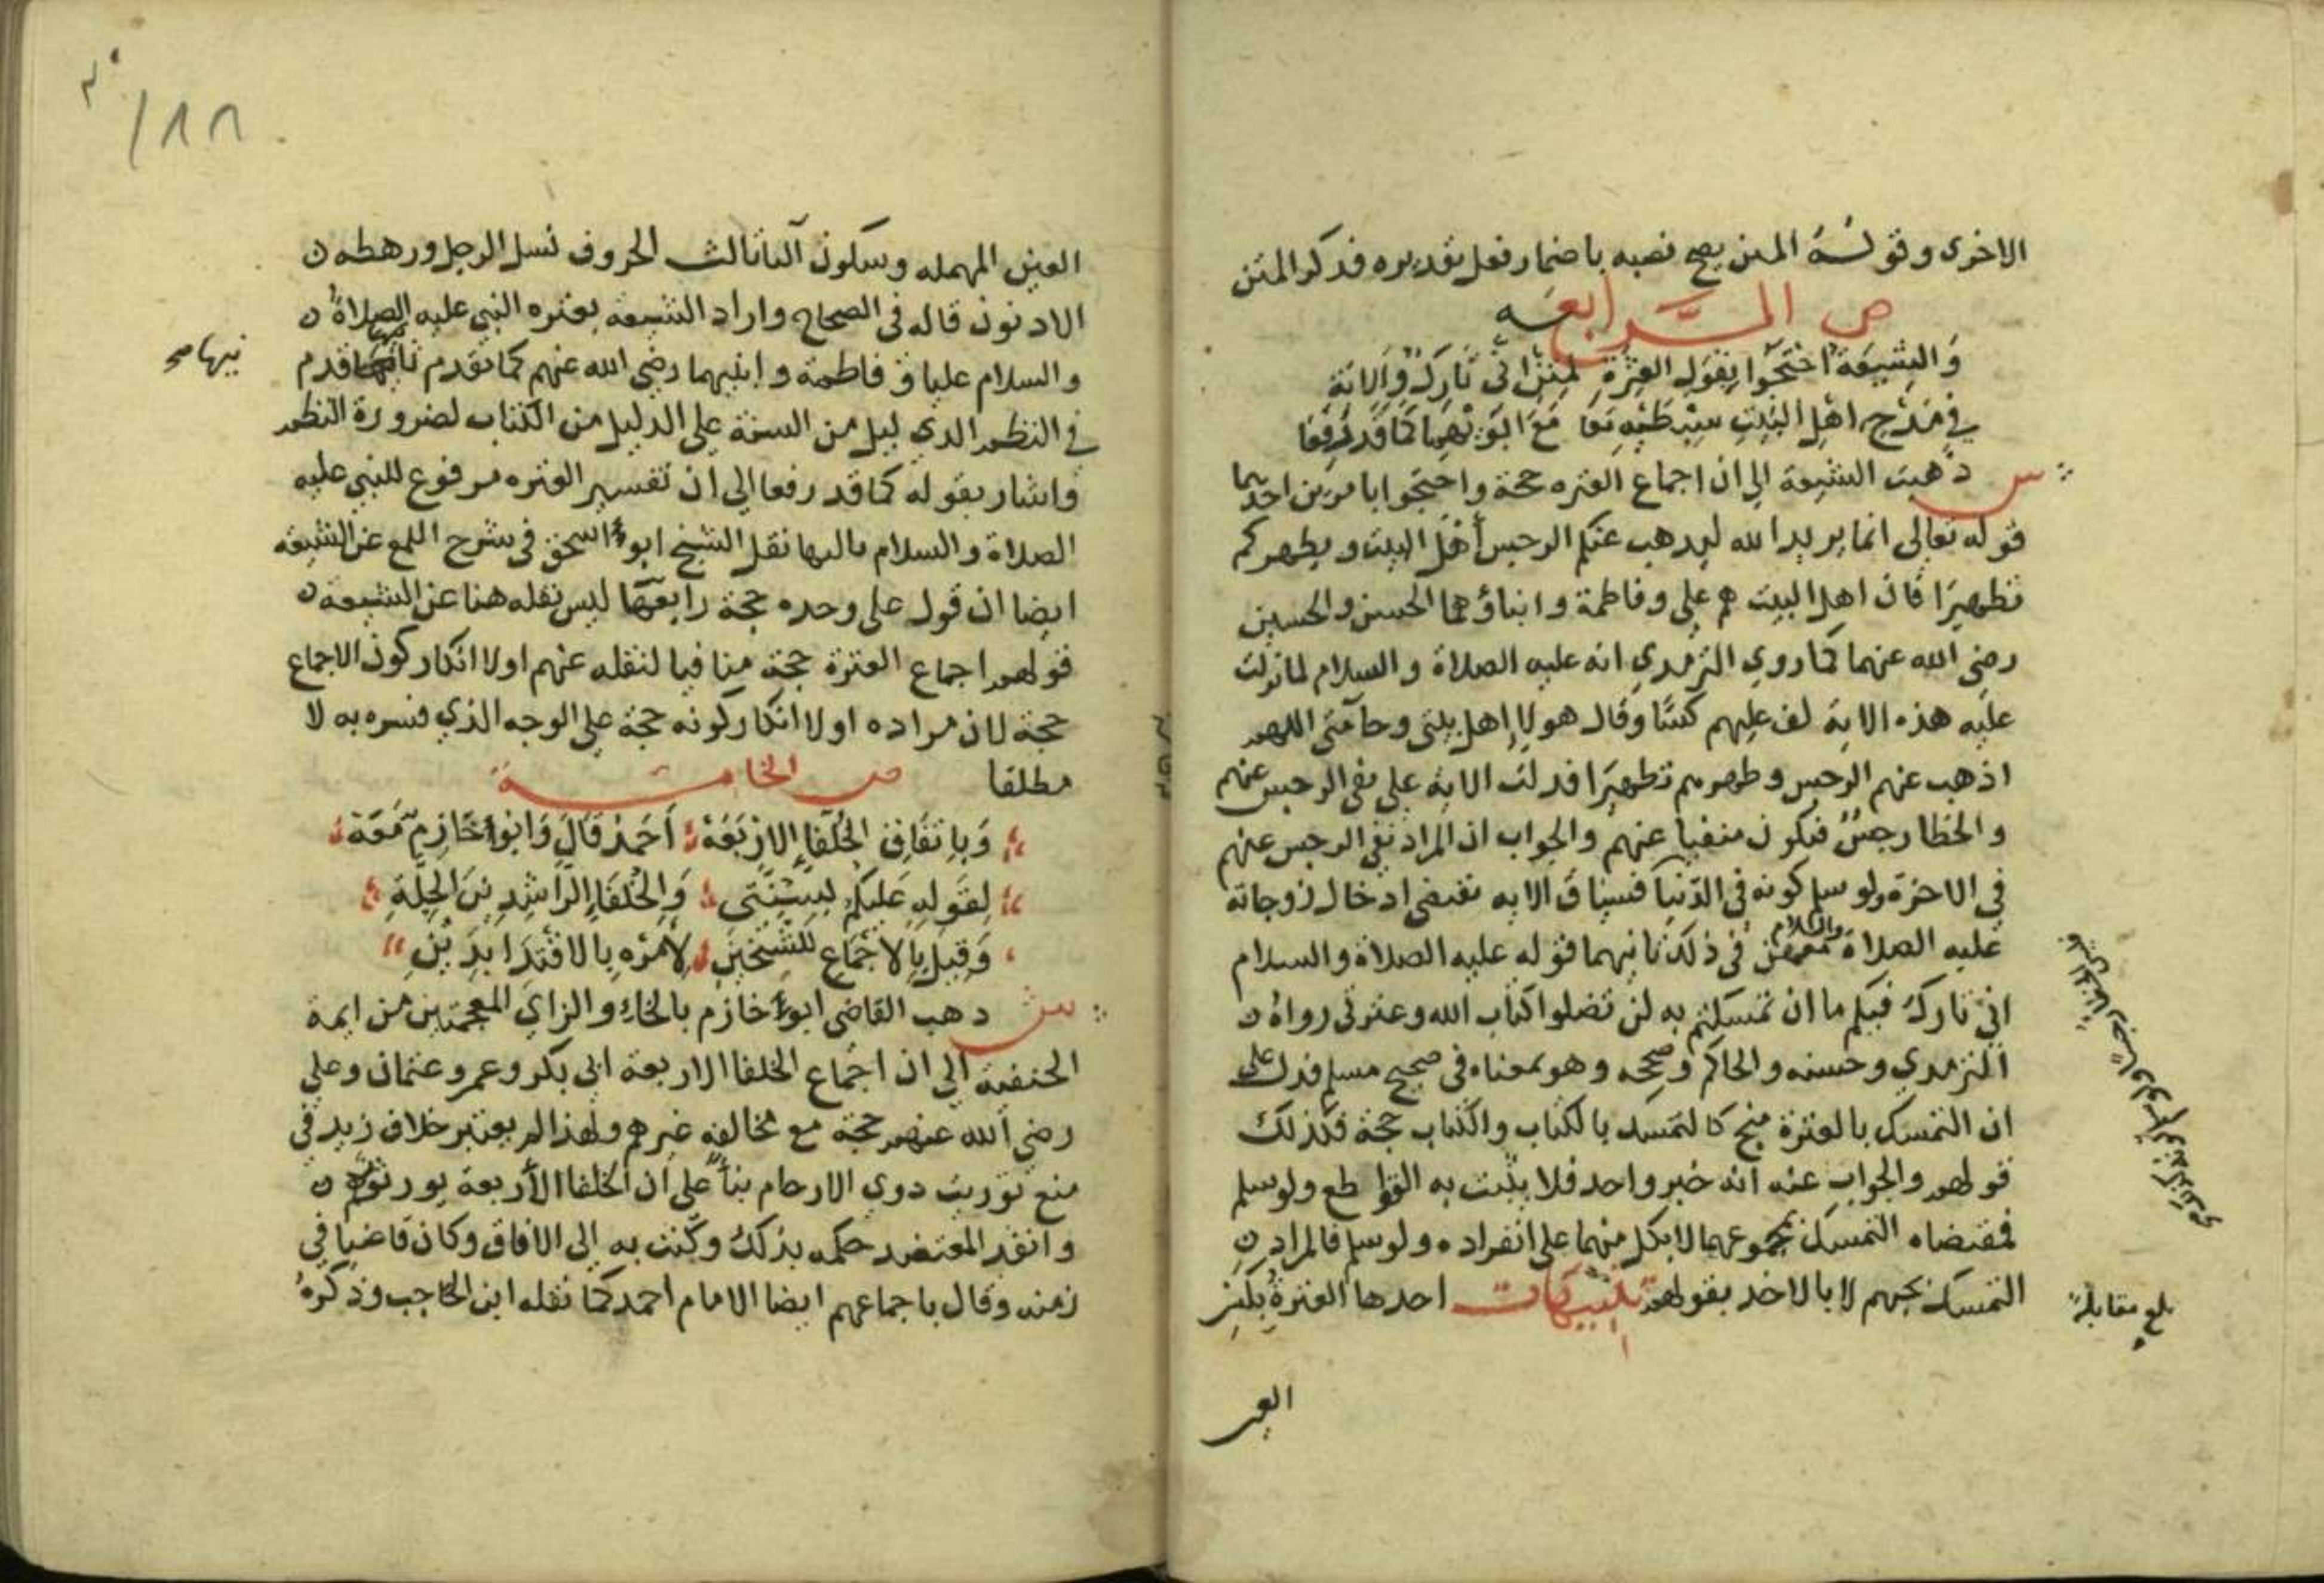 الاخرى وقوله المتن يصح نصبه باضمار فعل تقديره فذكر المتن
ص الرابعه
وَالشيعَةُ احْتَجّوا بقولِ العِتْرةِ لمتن اني تَارِكٌ وَالاية
في مَدْح اهْلِ البَيتِ سِبْطَيْهِ مَعَا مَعَ ابَوَيْهِمَا كَمَا قَدْ رُفِعَا
س ذهبت الشيعة الى ان اجماع العتره حجة واحتجوا بامرين احدهما
قوله تعالى انما يريد الله ليذهب عنكم الرجس أهل البيت ويطهركم
تطهيرًا فان اهل البيت هم علي وفاطمة وابناؤهما الحسن والحسين
رضي الله عنهما كما روى الترمدي انه عليه الصلاة والسلام لما نزلت
عليه هذه الاية لف عليهم كسًا وقال هولاء اهل بيتي وحامتي اللهم
اذهب عنهم الرجس وطهرهم تطهيرًا فدلت الاية على نفي الرجس عنهم
والخطا رجسٌ فيكون منفيا عنهم والجواب ان المراد نفي الرجس عنهم
في الاخرة ولو سلم كونه في الدنيا فسياق الايه تقتضي ادخال زوجاته
عليه الصلاة والسلام معهن في ذلك ثانيهما قوله عليه الصلاة والسلام
اني تارك فيكم ما ان تمسكتم به لن تضلوا كتاب الله وعترتي رواه
الترمدي وحسنه والحاكم وصححه وهو بمعناه في صحيح مسلم فدل على
ان التمسك بالعترة منج كالتمسك بالكتاب والكتاب حجة فكذلك
قولهم والجواب عنه انه خبر واحد فلا يثبت به القواطع ولو سلم
فمقتضاه التمسك بمجموعهما لا بكل منهما على انفراده ولو سلم فالمراد
التمسك بحبهم لا بالاخد بقولهم تنبيهات احدها العترة بكسر
بلغ مقابلة
العين
العين المهمله وسكون التا ثالث الحروف نسل الرجل ورهطه
الادنون قاله في الصحاح واراد الشيعة بعتره النبي عليه الصلاة
والسلام عليا وفاطمة وابنيهما رضي الله عنهم كما تقدم ثانيها قدم
نيها صح
في النظم الدليل من السنة على الدليل من الكتاب لضرورة النظم
واشار بقوله كما قد رفعا الى ان تفسير العتره مرفوع للنبي عليه
الصلاة والسلام ثالثها نقل الشيخ ابو اسحق في شرح اللمع عن الشيعه
ايضا ان قول على وحده حجة رابعها ليس نقله هنا عن الشيعة
قولهم اجماع العترة حجة منافيا لنقله عنهم اولا انكار كون الاجماع
حجة لان مراده اولا انكار كونه حجة على الوجه الذي فسره به لا
مطلقا ص الخامسة
وَبِاتفَاقِ الخُلَفَاءِ الارْبَعَهْ أَحَمدْ قَالَ وَابُو خَازِمٍ مَعَهْ
لقَولهِ عَليكُم بسُنَّتِي وَالخُلفَاءِ الرَّاشِدِينَ الجِلَّةِ
وَقِيلَ بالاجْمَاعِ للشَّيْخَينِ لأمْرهِ بالاقْتِدَا بِذَيْنِ
ش دهب القاضي ابو خازم بالخاء والزاي المعجمتين من ايمة
الحنفية الى ان اجماع الخلفا الاربعة ابي بكر وعمر وعثمان وعلي
رضي الله عنهم حجة مع مخالفه غيرهم ولهذا لم يعتبر خلاف زيد في
منع توريث دوى الارحام بناً على ان الخلفا الأربعة يورثونهم
وانفد المعتضد حكمه بذلك وكتب به الى الافاق وكان قاضيا في
زمنه وقال باجماعهم ايضا الامام احمد كما نقله ابن الحاجب وذكره